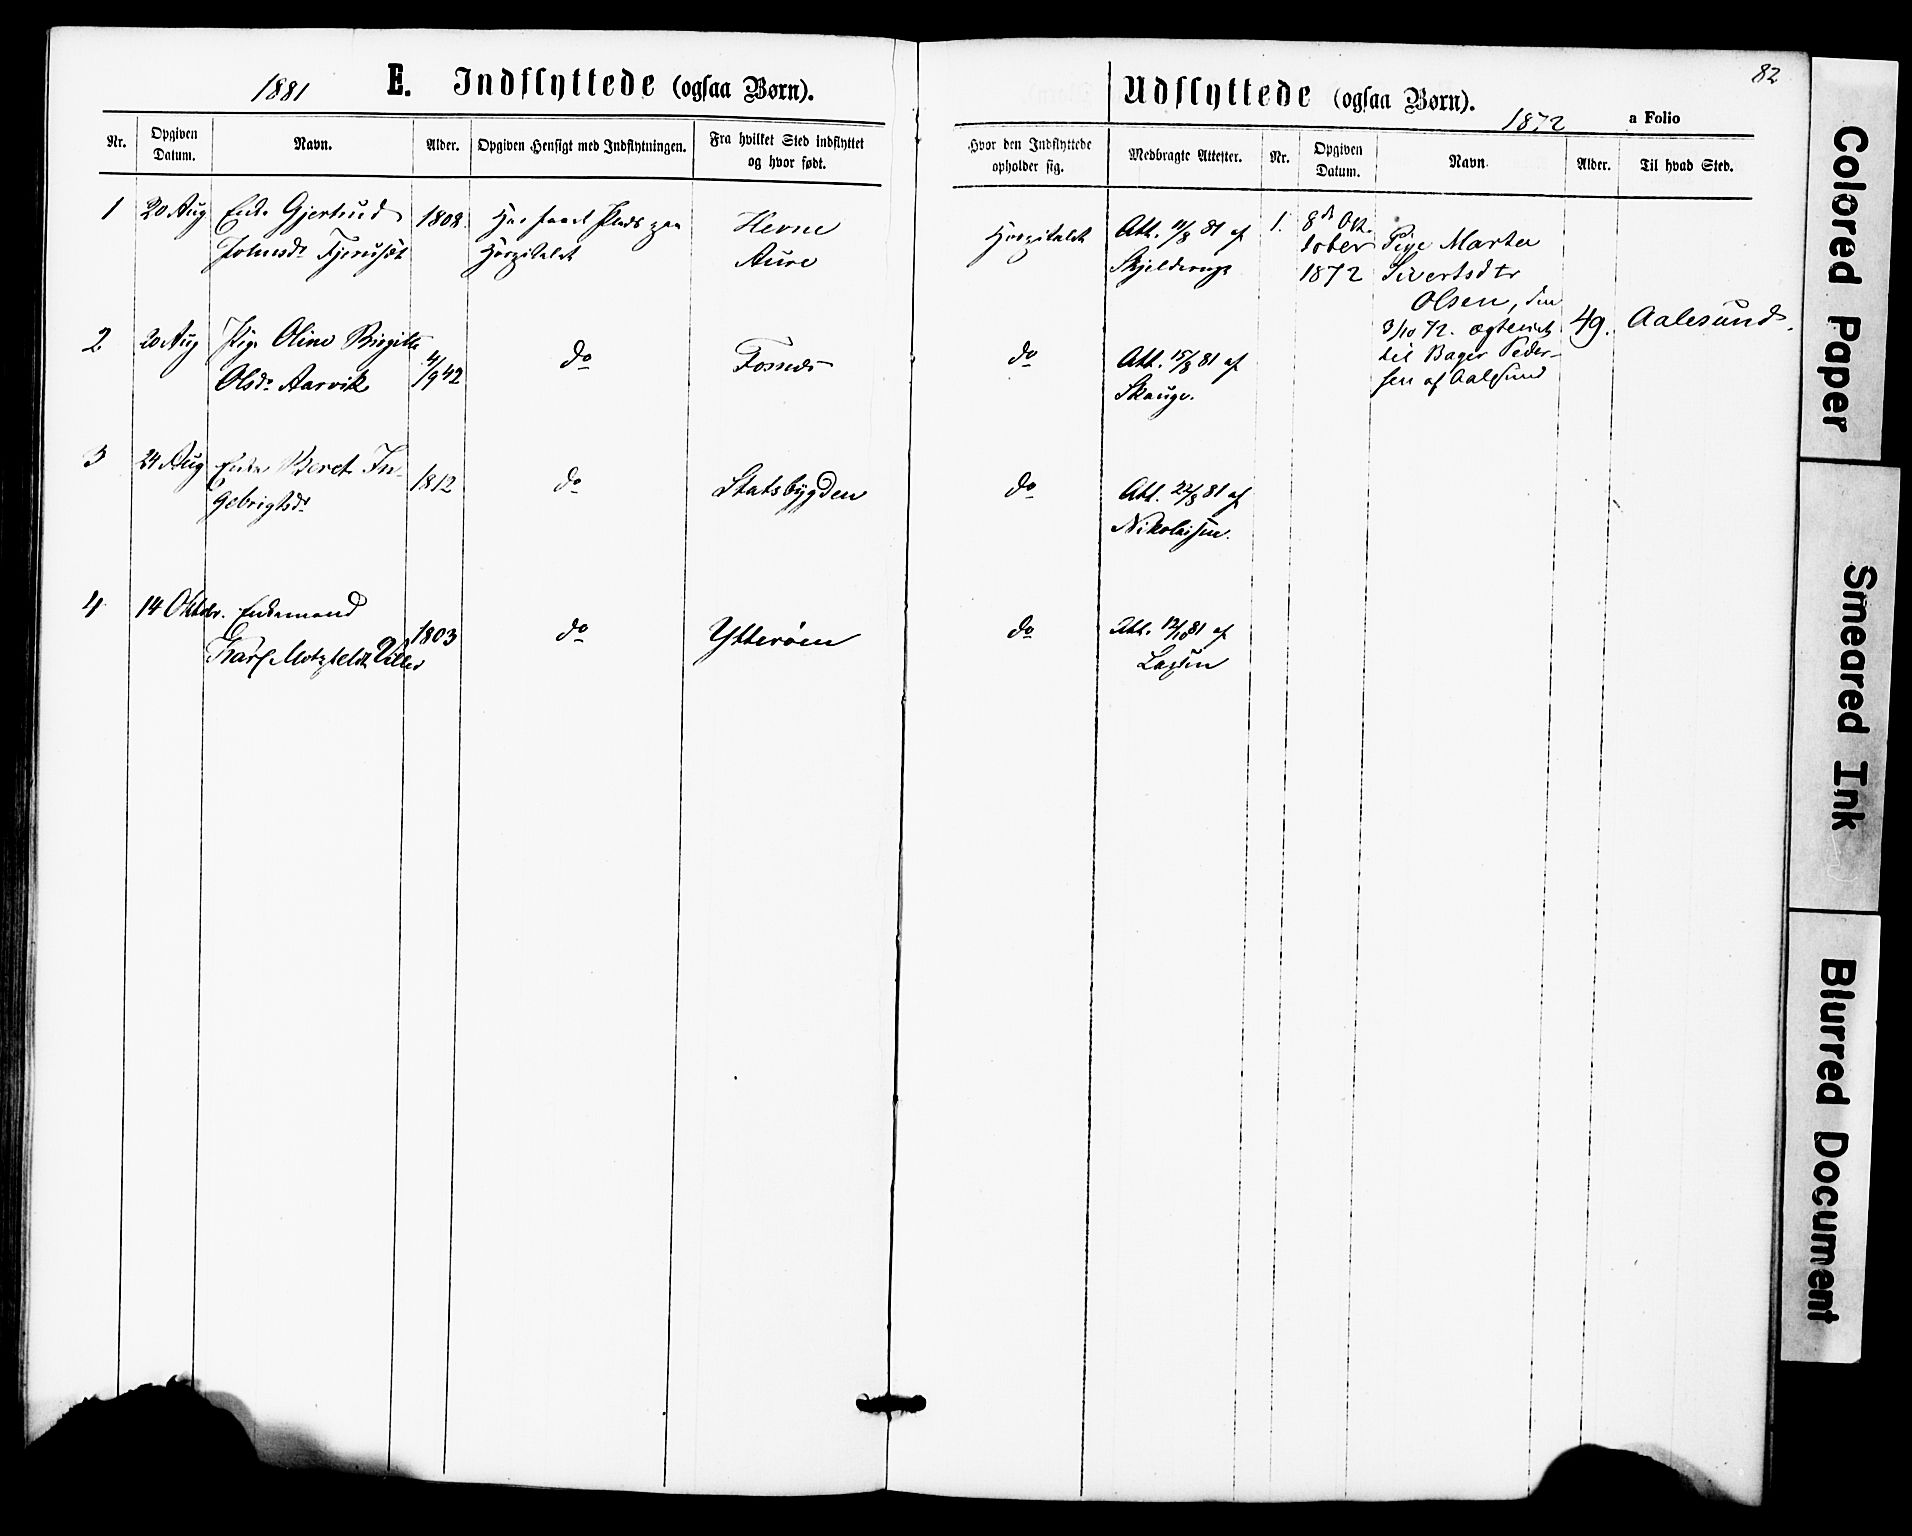 1881 E. Indflyttede (ogsaa Børn).
Nr. Opgiven Datum. Navn. Alder. Opgiven Hensigt med Indflytningen. Fra hvilket Sted indflyttet og hvor født.
1 20 Aug Enke Gjertrud 1802. Har faaet Plads paa Hevne
Johnsdr Hospitalet Aure
2 20 Aug Pige Oline Birgitte
Olsdr Aarvik 4/9 42 do Fosnes
3 24 Aug Enke Beret In-
gebrigtsdr 1812 do Statsbygden
4 14 Oktbr. Enkemand
Motzfeldt 1803 do Ytterøen
Udflyttede (ogsaa Børn). 82
1872 a Folio
Hvor den Indflyttede opholder sig. Medbragte Attester. Nr. Opgiven Datum. Navn. Alder. Til hvad Sted.
Hospitalet Att. 11/8 81 af
Skjelderup
do Att. 15/8 81 af
Skauge.
do Att. 22/8 81 af
Nikolaisen.
do Att. 12/10 81 af
1. 8de Ok-
tober
1872
Pige Marta
Sivertsdtr
Olsen, den
3/10 72. ægteviet
til Bager Peder-
sen af Aalesund
49. Aalesund.
Colored Paper
Smeared Ink
Blurred Document